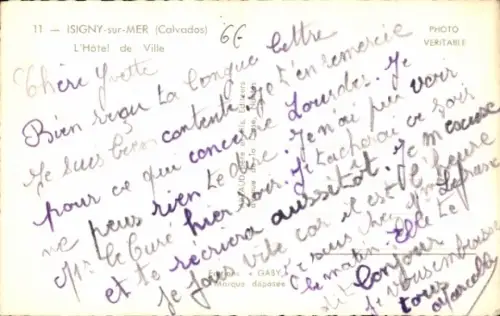 11 - ISIGNY-sur-MER (Calvados)
L'Hôtel de Ville
PHOTO
VERITABLE
66
Chère Yvette
Bien reçu ta longue lettre
Je suis bien contente. Je t'en remercie
pour ce qui concerne Lourdes. Je
ne peus rien te dire. Je n'ai pu voir
Mr le Curé hier soir. Je tacherai ce soir
et te récrirai aussitôt. Je m'excuse
Je fais vite car il est l'heure
Je suis chez Mme
le matin. Elle te
dit bonjour
Je vous embrasse
tous
Marcelle
"GASY"
Marque déposée